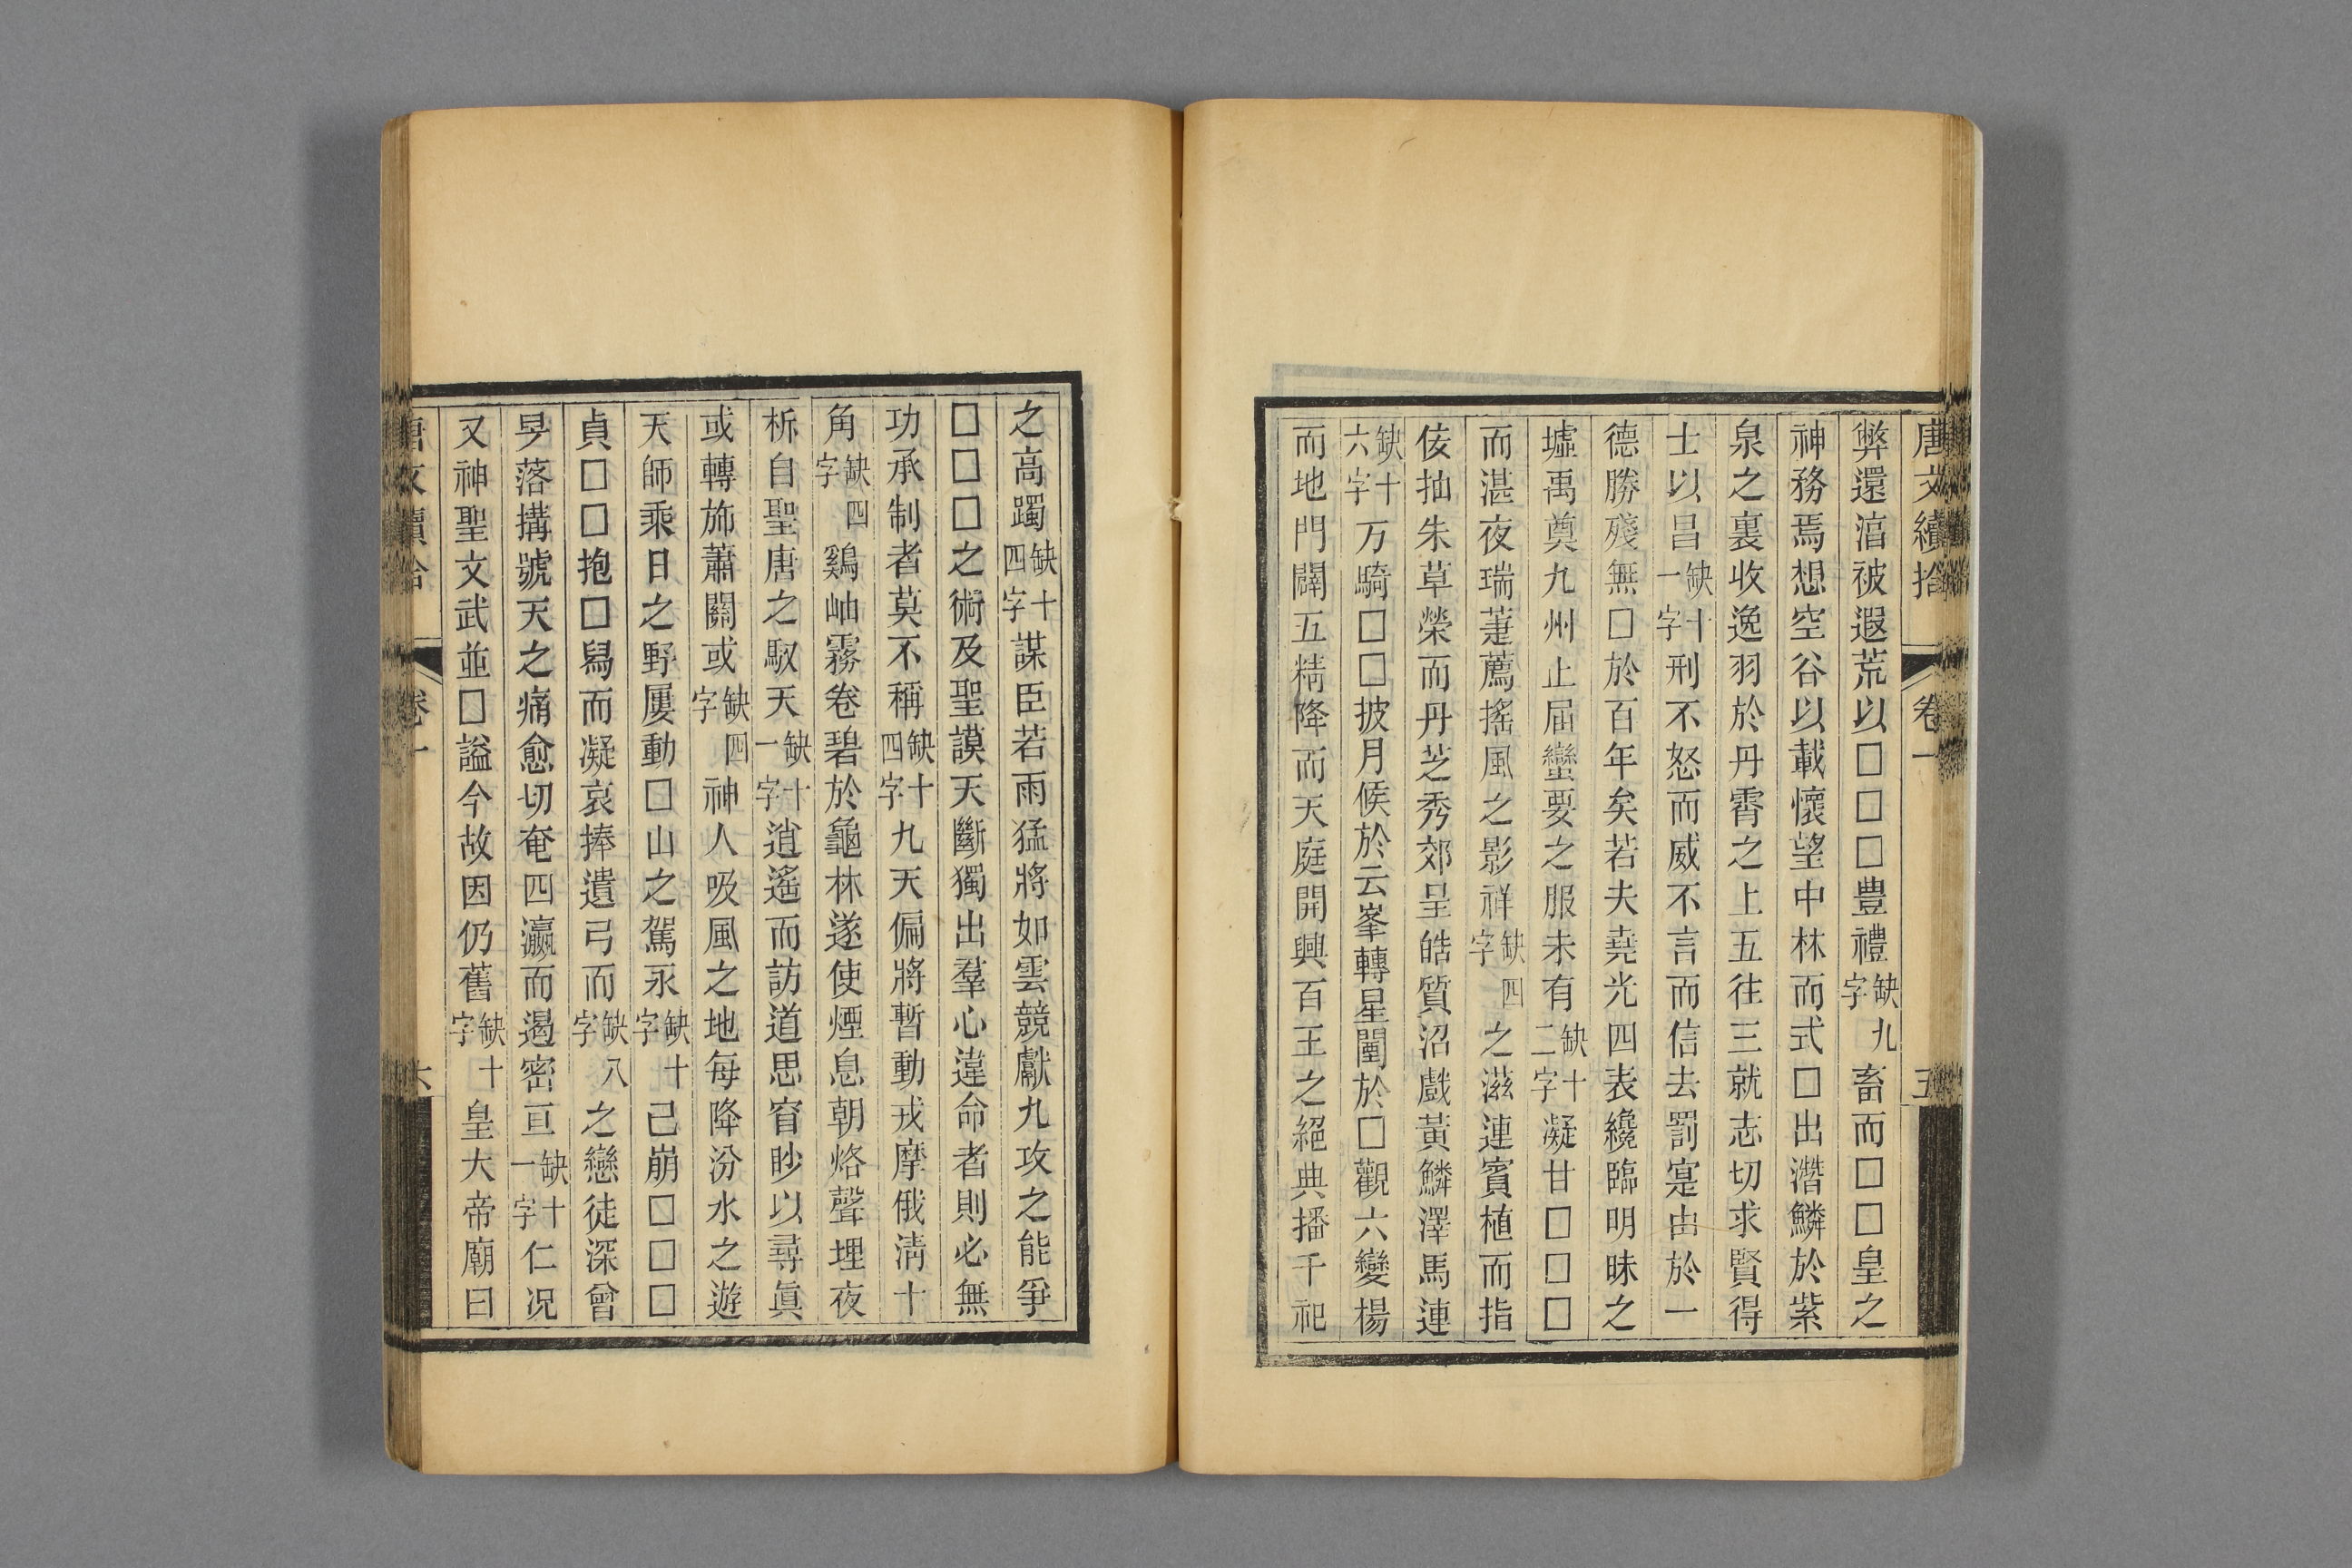 唐文續拾 卷一 五
弊還淳被遐荒以□□□豊禮缺九字畜而□□□皇之
神務焉想空谷以載懷望中林而式□出潛鱗於紫
泉之裏收逸羽於丹霄之上五往三就志切求賢得
士以昌缺十一字刑不怒而威不言而信去罰寔由於一
德勝殘無□於百年矣若夫堯光四表纔臨明昧之
墟禹奠九州止屆蠻要之服未有缺十二字凝甘□□□
而湛夜瑞萐薦搖風之影祥缺四字之滋連賓植而指
佞抽朱草榮而丹芝秀郊呈皓質沼戲黃鱗澤馬連
缺十六字万騎□□披月候於云峯轉星闈於□觀六變楊
而地門闢五精降而天庭開興百王之絕典播千祀
之高躅缺十四字謀臣若雨猛將如雲競獻九攻之能爭
□□□之術及聖謨天斷獨出羣心違命者則必無
功承制者莫不稱缺十四字九天偏將暫動戎摩俄淸十
角缺四字鷄岫霧卷碧於龜林遂使煙息朝烙聲埋夜
柝自聖唐之馭天缺十一字逍遙而訪道思窅眇以尋眞
或轉斾蕭關或缺四字神人吸風之地每降汾水之遊
天師乘日之野屢動□山之駕永缺十字己崩□□□
貞□□抱□舄而凝哀捧遺弓而缺八字之戀徒深曾
旻落搆號天之痛愈切奄四瀛而遏密亘缺十一字仁况
又神聖文武並□謚今故因仍舊缺十字皇大帝廟曰
唐文續拾 卷一 六